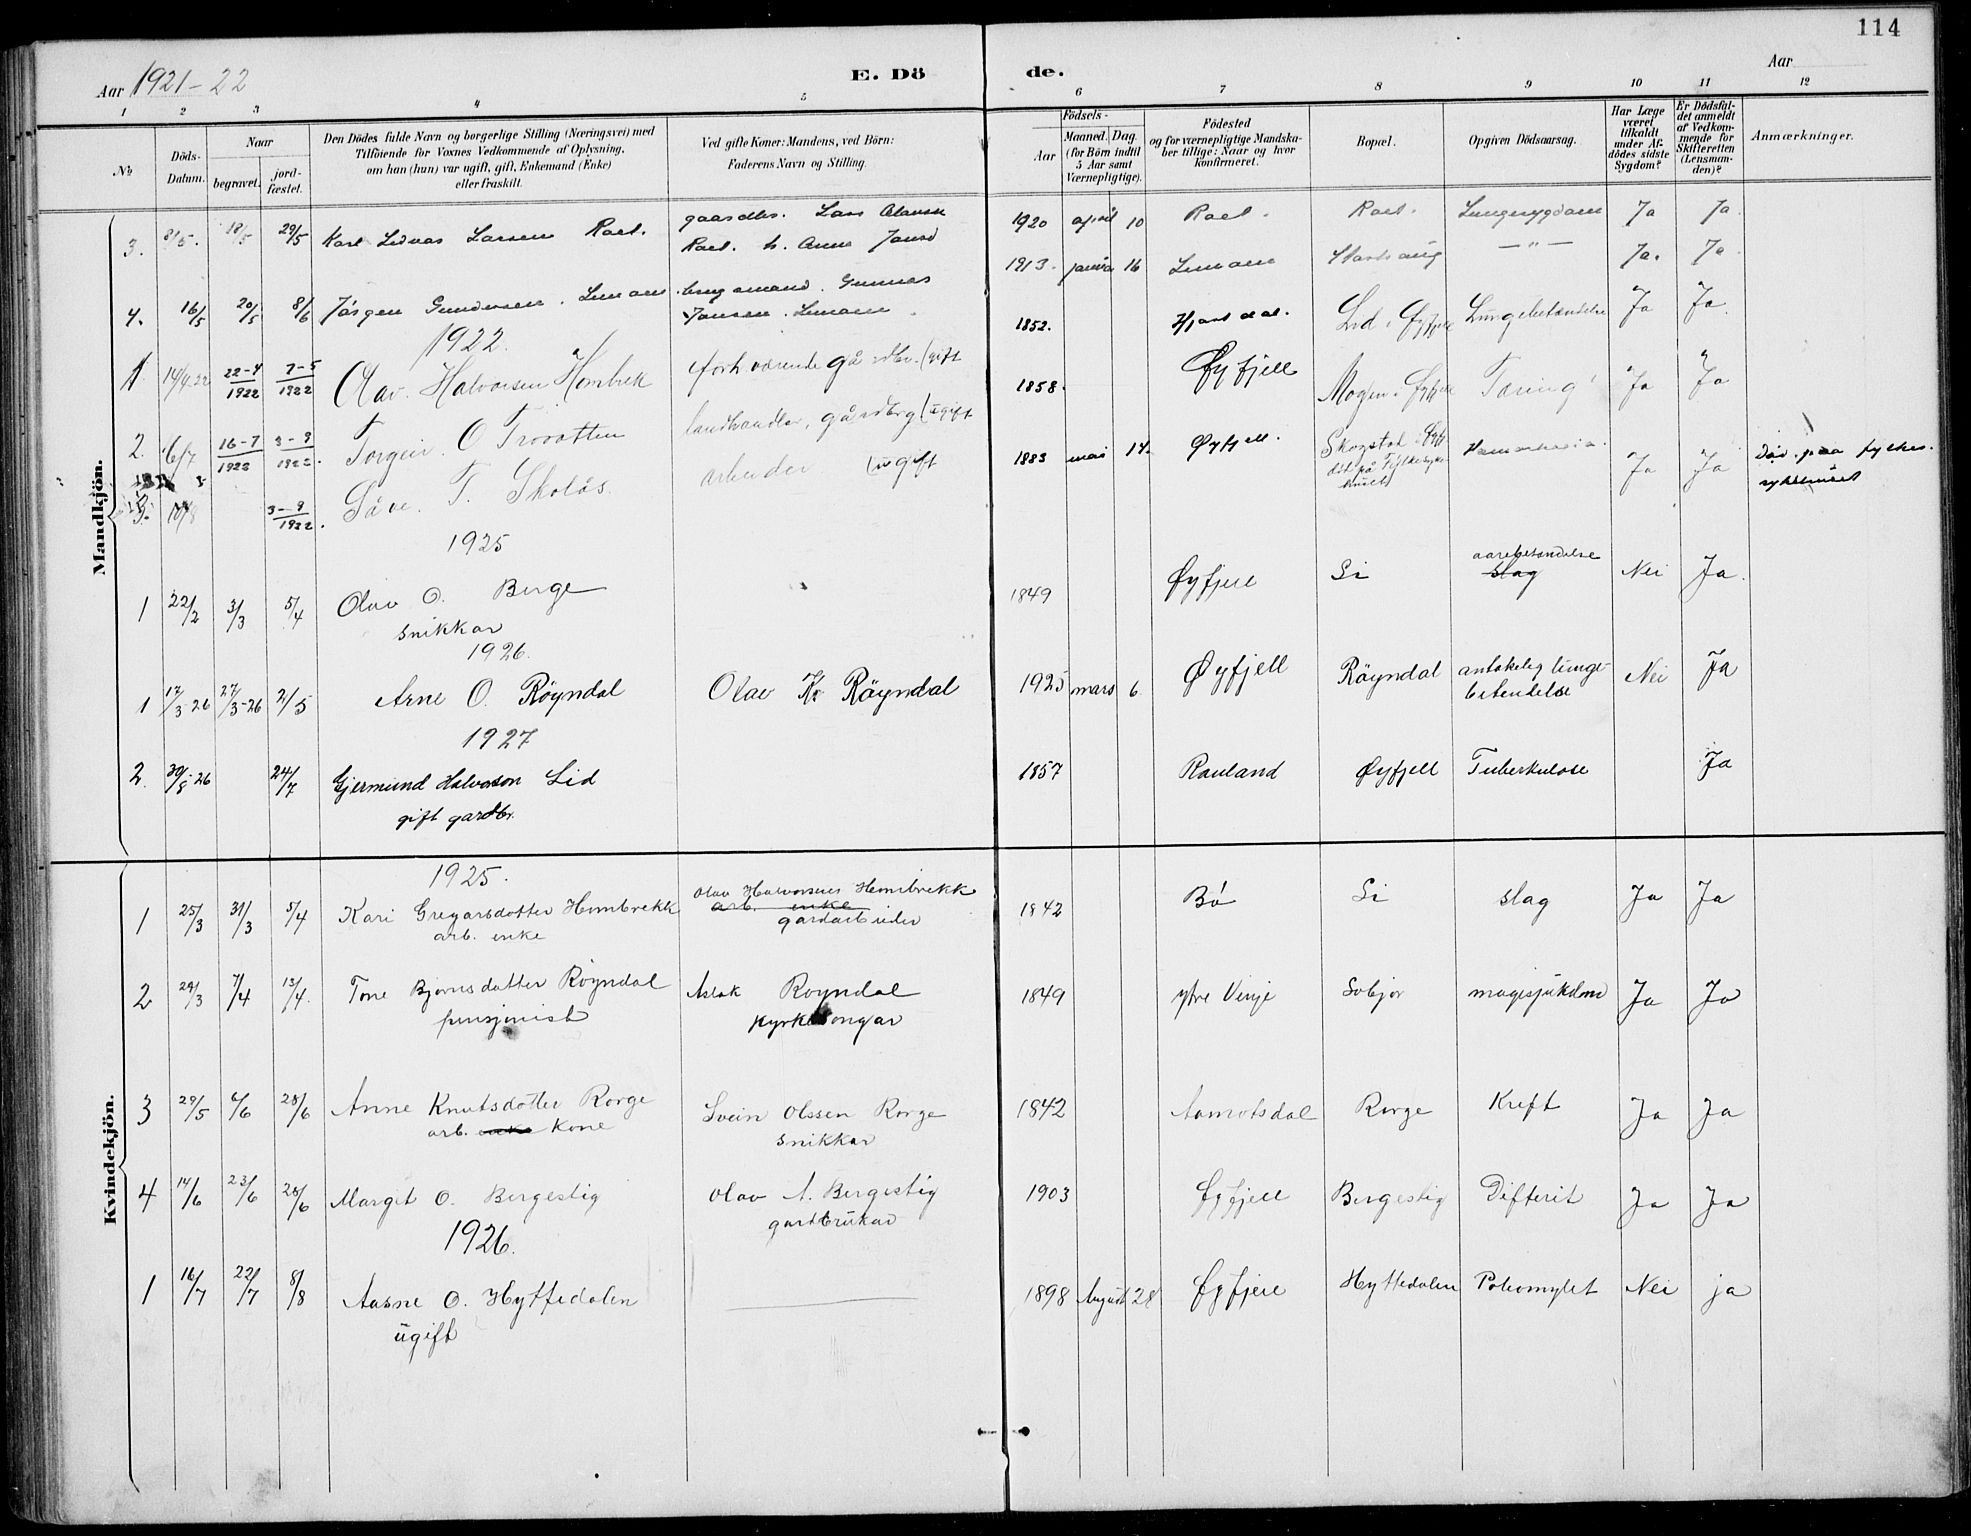 114
Aar 1921-22
E. Dö de.
Aar
1 2 3 4 5 6 7 8 9 10 11 12
No
Döds-Datum.
Naar
begravet.
jord-fæstet.
Den Dödes fulde Navn og borgerlige Stilling (Næringsvei) med
Tilföiende for Voxnes Vedkommende af Oplysning,
om han (hun) var ugift, gift, Enkemand (Enke)
eller fraskilt.
Ved gifte Koner: Mandens, ved Börn:
Faderens Navn og Stilling.
Födsels-
Aar
Maaned. Dag.
(for Börn indtil
5 Aar samt
Værnepligtige).
Födested
og for værnepligtige Mandska-
ber tillige: Naar og hvor
konfirmeret.
Bopæl.
Opgiven Dödsaarsag.
Har Læge
været
tilkaldt
under Af-
dödes sidste
Sygdom?
Er Dödsfal-
det anmeldt
af Vedkom-
mende for
Skifteretten
(Lensman-
den)?
Anmærkninger.
Mandkjön.
3. 8/5. 18/5 29/5 Karl Larsen gaardbr. Lars 1920 april 10 Ja Ja
Anna
4. 16/5 20/5 8/6 Jörgen Gundersen 1913. januar 16 — " — Ja. Ja
Jansen
1922.
1 14/4.22 22-4/1922 7-5/1922 Olav Halvorsen Hombrek forh værende gårdbr. (gift 1852. Hjartdal. Lid i Øyfjell Lungebetændelse Ja Ja
2. 6/7 16-7/1922 3-9/1922. Torgeir O Trovatten landhandler, gårdbrg (ugift 1858. Øyfjell Mogen i Øyfjell Tæring Ja Ja
3. 10/8 3-9/1922. T. Skolås arbeider (ugift 1883 mai 14. Øyfjell. Ja Ja Död paa fylkes-
sykehuset
1925
1 22/2 3/3 5/4 Olav O. Berge 1849 Øyfjell Li aarebetændelse slag Nei Ja.
snikkar
1926.
1 17/3-26 27/3-26 2/5 Arne O. Röyndal Olav K. Röyndal 1925 mars 6 Øyfjell Röyndal antakeleg lunge-
betendelse Nei Ja
1927
2. 30/8-26 24/7 Gjermund Halvorson Lid 1857 Rauland Øyfjell Tuberkulose Ja
gift gardbr.
Kvindekjön.
1925.
1 25/3 31/3 5/4 Kari Gregarsdotter Hombrekk Olav Halvorsens Hombrekk 1842 Bö Li slag Ja Ja
arb. enke arb. enke
gardarbeider
2 29/3 7/4 13/4. Tone Bjørnsdatter Röyndal Aslak Royndal 1849 ytre Vinje magesjukdom Ja Ja
pensjonist kyrkesongar
3 29/5 6/6 28/6 Anne Knutsdotter Rorge Svein Olssen Rorge 1842 Aamotsdal Rorge Kreft Ja Ja
arb. enke kone snikkar
4 14/6 23/6 28/6 Margit O. Bergestig Olav A. Bergestig 1903 Øyfjell Bergestig Difterit Ja Ja
gardbrukar
1926.
1 16/7 22/7 8/8 Aasne O. Hyttedalen 1898 August 28 Øyfjell Hyttedalen Poliomylit Nei ja
ugift